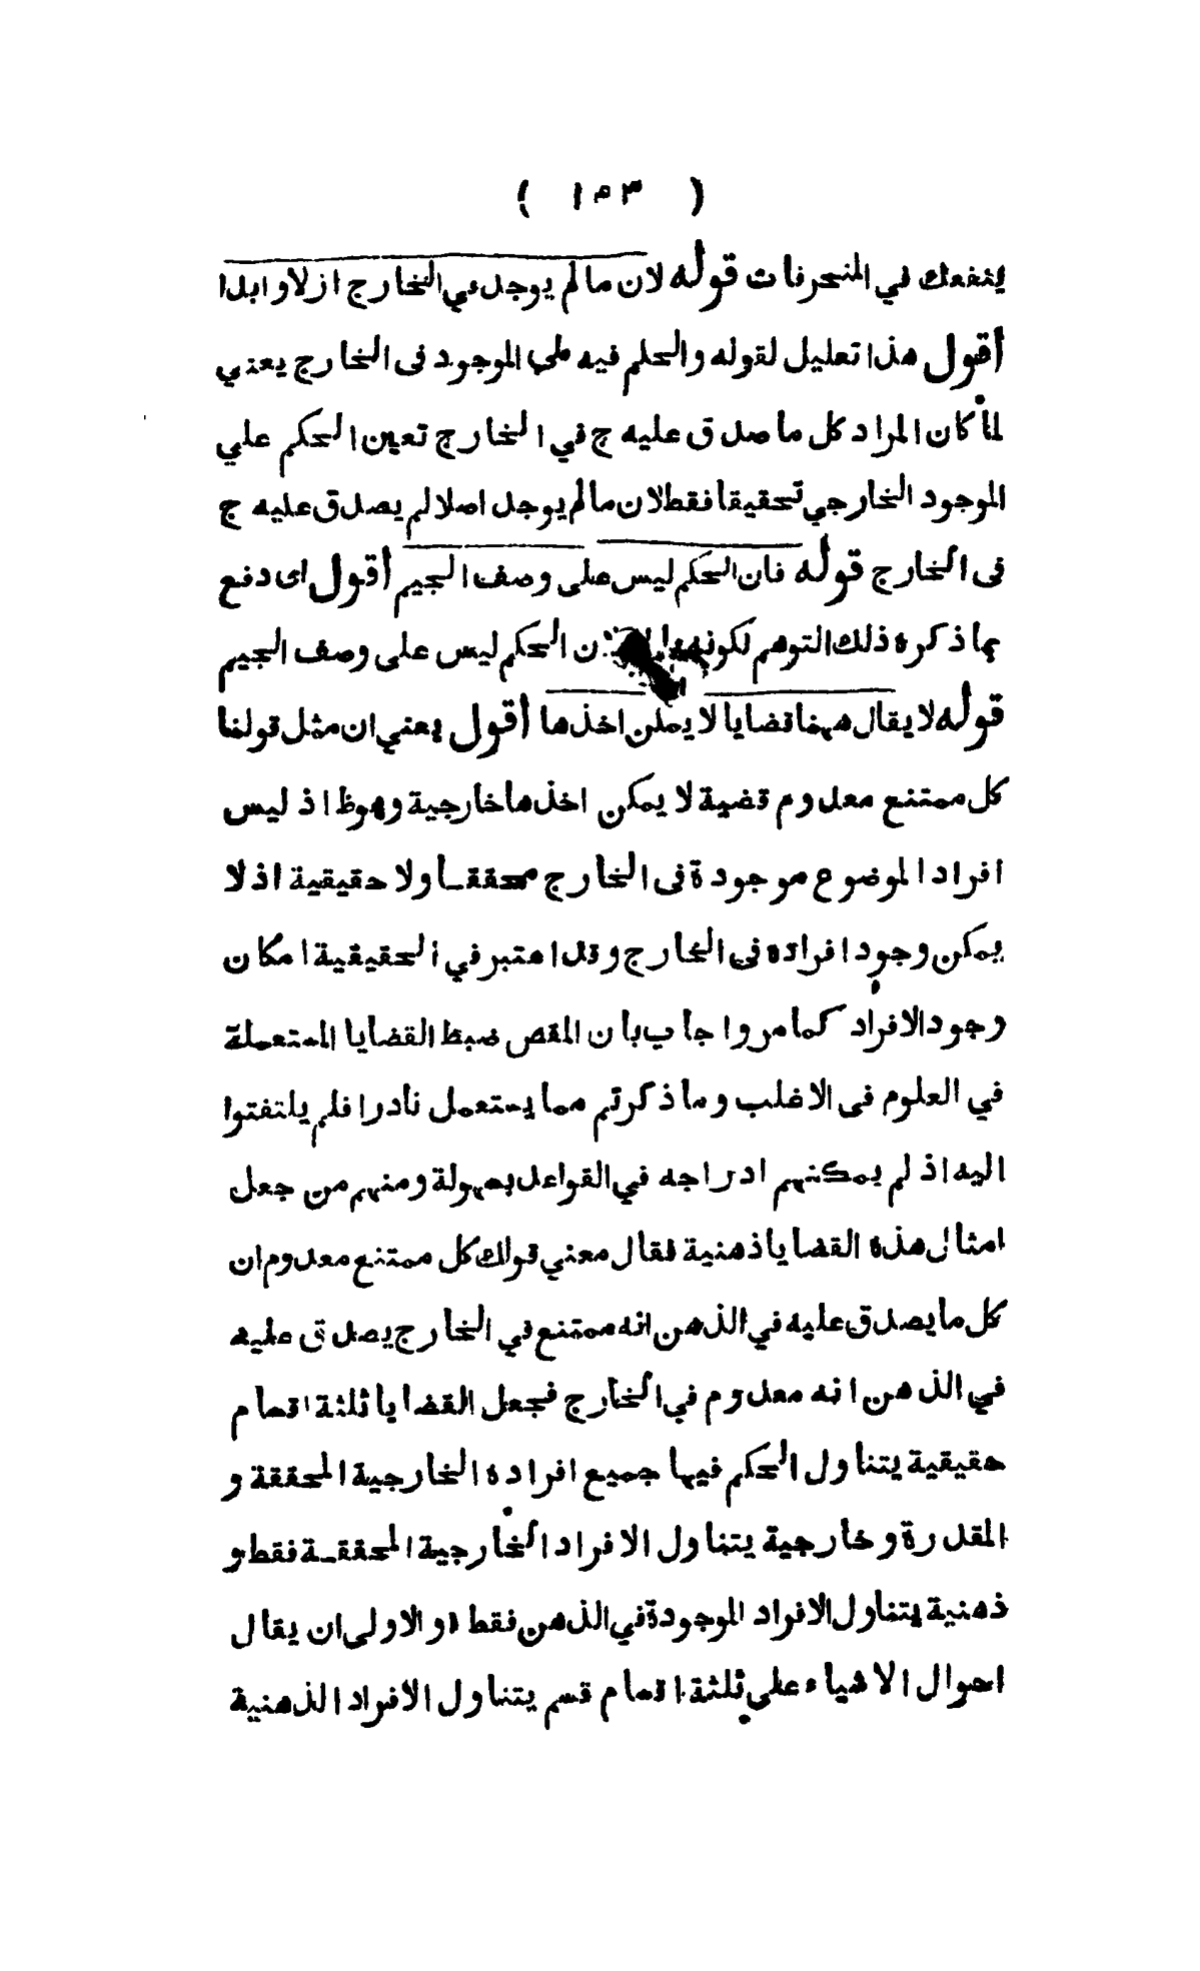 ( ١٥٣ )
ينفعك في المنحرفات قوله لان ما لم يوجد في الخارج ازلا وابدا
أقول هذا تعليل لقوله والحكم فيه علي الموجود فى الخارج يعني
لما كان المراد كل ما صدق عليه ج في الخارج تعين الحكم علي
الموجود الخارجي تحقيقا فقط لان ما لم يوجد اصلا لم يصدق عليه ج
فى الخارج قوله فان الحكم ليس على وصف الجيم أقول اى دفع
بما ذكره ذلك التوهم لكونه ان الحكم ليس على وصف الجيم
قوله لا يقال ههنا قضايا لا يمكن اخذها أقول يعني ان مثل قولنا
كل ممتنع معدوم قضية لا يمكن اخذها خارجية وهو ظ اذ ليس
افراد الموضوع موجودة فى الخارج محققــا ولا حقيقية اذ لا
يمكن وجود افراده فى الخارج وقد اعتبر في الحقيقية امكان
وجود الافراد كما مر واجاب بان المقص ضبط القضايا المستعملة
في العلوم فى الاغلب وما ذكرتم مما يستعمل نادرا فلم يلتفتوا
اليه اذ لم يمكنهم ادراجه في القواعد بسهولة ومنهم من جعل
امثال هذه القضايا ذهنية فقال معني قولك كل ممتنع معدوم ان
كل ما يصدق عليه في الذهن انه ممتنع في الخارج يصدق عليه
في الذهن انه معدوم في الخارج فجعل القضايا ثلثة اقسام
حقيقية يتناول الحكم فيها جميع افراده الخارجية المحققة و
المقدرة وخارجية يتناول الافراد الخارجية المحققــة فقط و
ذهنية يتناول الافراد الموجودة في الذهن فقط والاولى ان يقال
احوال الاشياء على ثلثة اقسام قسم يتناول الافراد الذهنية